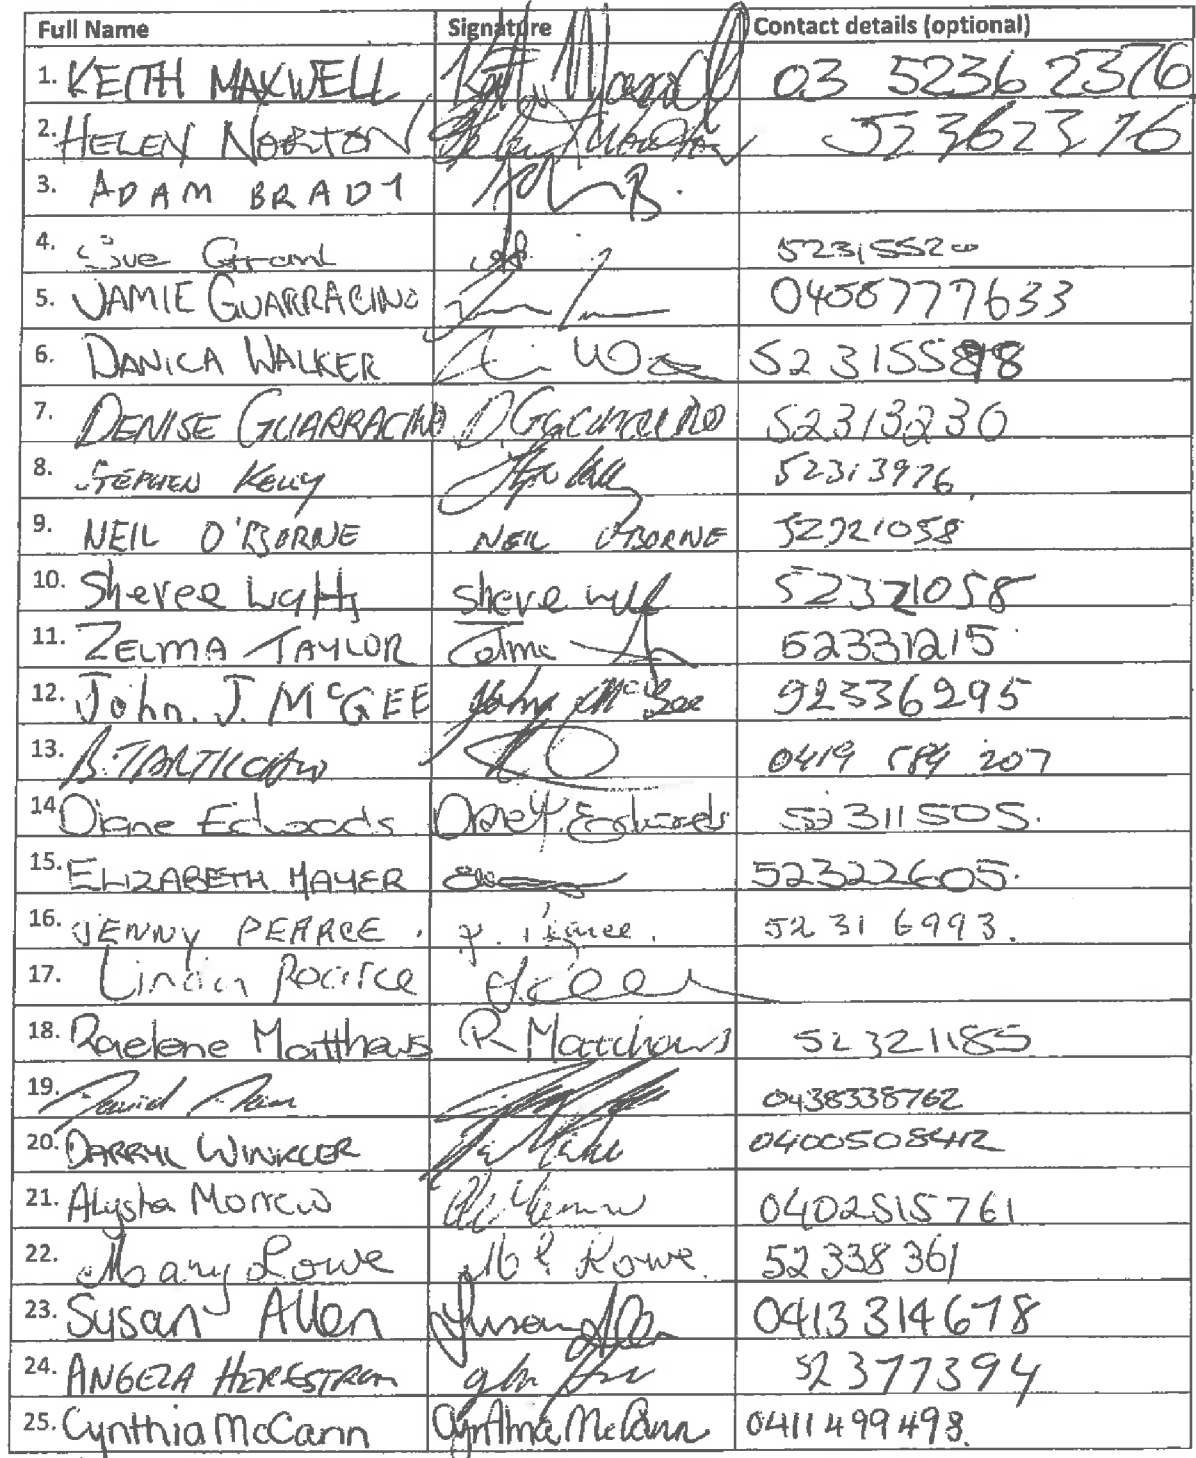 Full Name Signature Contact details (optional)
1. KEITH MAXWELL 03 5236 2376
2. HELEN NORTON 52362376
3. ADAM BRADY
4. Sue Grant 52315520
5. JAMIE GUARRACINO 0408777633
6. DANICA WALKER 52315598
7. DENISE GUARRACINO D. Guarracino 52313230
8. STEPHEN KELLY 52313976
9. NEIL O'BORNE NEIL O'BORNE 52321058
10. Sheree Watts 52321058
11. ZELMA TAYLOR 52331215
12. John. J. McGEE John McGee 52336295
13. 0419 584 207
14 Diane Edwards Edwards 52311505.
15. ELIZABETH MAYER 52322605.
16. JENNY PEARCE. J. Pearce. 52 31 6993.
17.
18. Raelene Matthews R Matthews 52321185
19. David 0438338762
20. DARRYL WINKLER 0400508412
21. Alysha Morrow 0402515761
22. Mary Lowe 52 338 361
23. Susan Allen Susan Allen 0413 314 678
24. ANGELA 52 377394
25. Cynthia McCann Cynthia McCann 0411 499 498.